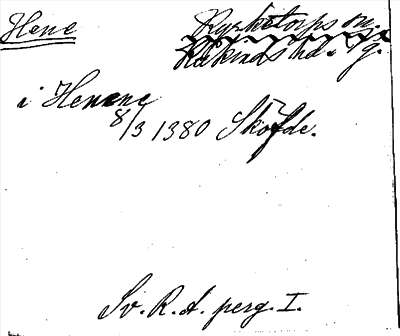 Hene
Ryrketorps sn.
Kåkinds hd. Vg.
i Henene
8/3 1380 Sköfde.
Sv. R. A. perg. I.